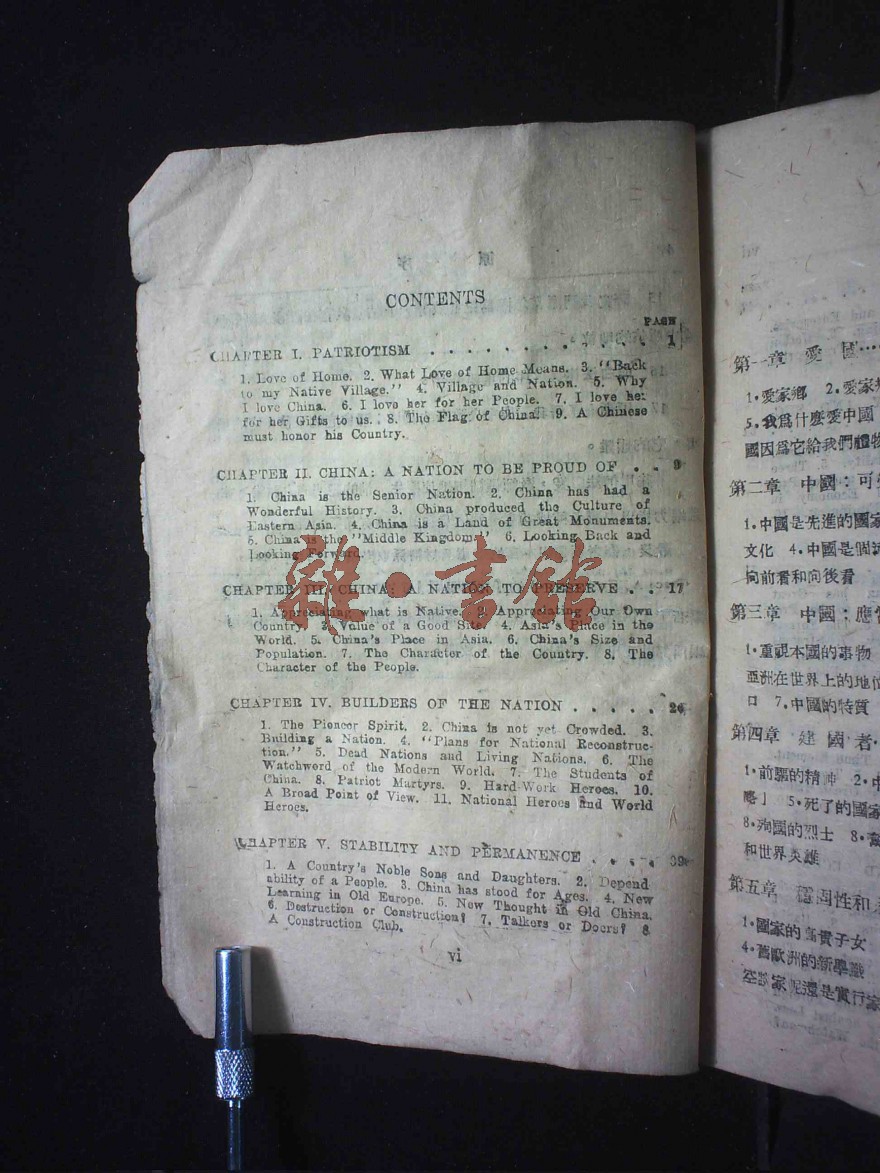 CONTENTS
PAGE
CHAPTER I. PATRIOTISM . . . . . . . . . . . . 1
1. Love of Home. 2. What Love of Home Means. 3. "Back
to my Native Village." 4. Village and Nation. 5. Why
I love China. 6. I love her for her People. 7. I love her
for her Gifts to us. 8. The Flag of China. 9. A Chinese
must honor his Country.
CHAPTER II. CHINA: A NATION TO BE PROUD OF . . 9
1. China is the Senior Nation. 2. China has had a
Wonderful History. 3. China produced the Culture of
Eastern Asia. 4. China is a Land of Great Monuments.
5. China is the "Middle Kingdom" 6. Looking Back and
Looking Forward.
雜·書館
CHAPTER III. CHINA: A NATION TO PRESERVE . . 17
1. Appreciating what is Native. 2. Appreciating Our Own
Country. 3. Value of a Good Site. 4. Asia's Place in the
World. 5. China's Place in Asia. 6. China's Size and
Population. 7. The Character of the Country. 8. The
Character of the People.
CHAPTER IV. BUILDERS OF THE NATION . . . . . 26
1. The Pioneer Spirit. 2. China is not yet Crowded. 3.
Building a Nation. 4. "Plans for National Reconstruc-
tion." 5. Dead Nations and Living Nations. 6. The
Watchword of the Modern World. 7. The Students of
China. 8. Patriot Martyrs. 9. Hard-Work Heroes. 10.
A Broad Point of View. 11. National Heroes and World
Heroes.
CHAPTER V. STABILITY AND PERMANENCE . . . . 39
1. A Country's Noble Sons and Daughters. 2. Depend
ability of a People. 3. China has stood for Ages. 4. New
Learning in Old Europe. 5. New Thought in Old China.
6. Destruction or Construction? 7. Talkers or Doers? 8.
A Construction Club.
vi
第一章 愛國…
1·愛家鄉 2·愛家
5·我爲什麽愛中國
國因爲它給我們禮物
第二章 中國：可
1·中國是先進的國家
文化 4·中國是個
向前看和向後看
第三章 中國：應
1·重視本國的事物
亞洲在世界上的地位
口 7·中國的特質
第四章 建國者
1·前驅的精神 2·中
略」 5·死了的國家
8·殉國的烈士
和世界英雄
第五章 穩固性和
1·國家的高貴子女
4·舊歐洲的新學識
空談家呢還是實行家